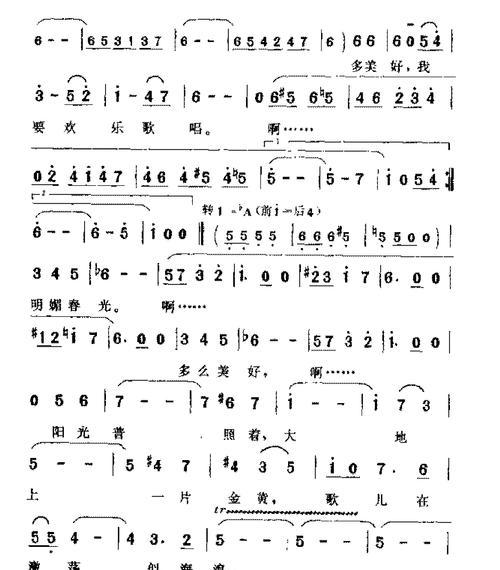 6 - - | 6 5 3 1 3 7 | 6 - - | 6 5 4 2 4 7 | 6 ) 6 6 | 6 0 5 4 |
多美 好,我
3 - 5 2 | i - 4 7 | 6 - - | 0 6 #5 6 ♮5 | 4 6 2 3 4 |
要 欢 乐 歌 唱。 啊……
0 2 4 i 4 7 | 4 6 4 #5 4 ♮5 | 5 - - | 5 - 7 | i 0 5 4 :||
转1=♭A(前i=后4)
6 - - | 6 - 5 | i 0 0 || ( 5 5 5 5 | 6 6 6 #5 | ♮5 5 0 0 ) |
3 4 5 | ♭6 - - | 5 7 3 2 | i. 0 0 | #2 3 i 7 | 6. 0 0 |
明媚春 光。 啊……
#1 2 ♮i 7 | 6. 0 0 | 3 4 5 | ♭6 - - | 5 7 3 2 | i. 0 0 |
多么美 好, 啊……
0 5 6 | 7 - - | 7 #6 7 | i - - | i 7 3 |
阳光普 照着,大 地
5 - - | 5 #4 7 | #4 3 5 | i 0 7. 6 |
上 一片 金黄, 歌 儿在
tr
5 5 4 - | 4 3. 2 | 5 - - | 5 - - | 5 - - |
激 荡 似海浪